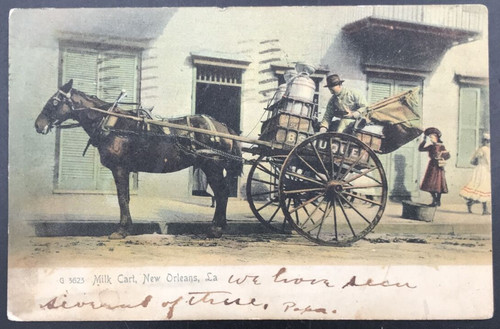 G 5625 Milk Cart, New Orleans, La
We have seen
several of these. Papa.